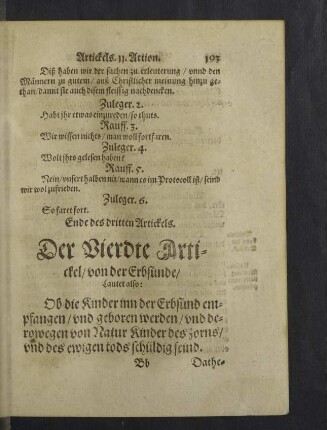 Artickels. 11. Action. 193
Diß haben wir der sachen zu erleuterung / vnnd den
Männern zu gutem / auß Christlicher meinung hinzu ge-
than / damit sie auch disem fleissig nachdencken.
Zuleger. 2.
Habt jhr etwas einzureden / so thuts.
Rauff. 3.
Wir wissen nichts / man woll fort faren.
Zuleger. 4.
Wolt jhrs gelesen haben?
Rauff. 5.
Nein / vnsert halben nit / wann es im Protocoll ist / seind
wir wol zufrieden.
Zuleger. 6.
So faret fort.
Ende des dritten Artickels.
Der Vierdte Arti-
ckel / von der Erbsünde /
Lautet also:
Ob die Kinder inn der Erbsünd em-
pfangen / vnd geboren werden / vnd de-
rowegen von Natur Kinder des zorns /
vnd des ewigen tods schuldig seind.
Bb Dathe-